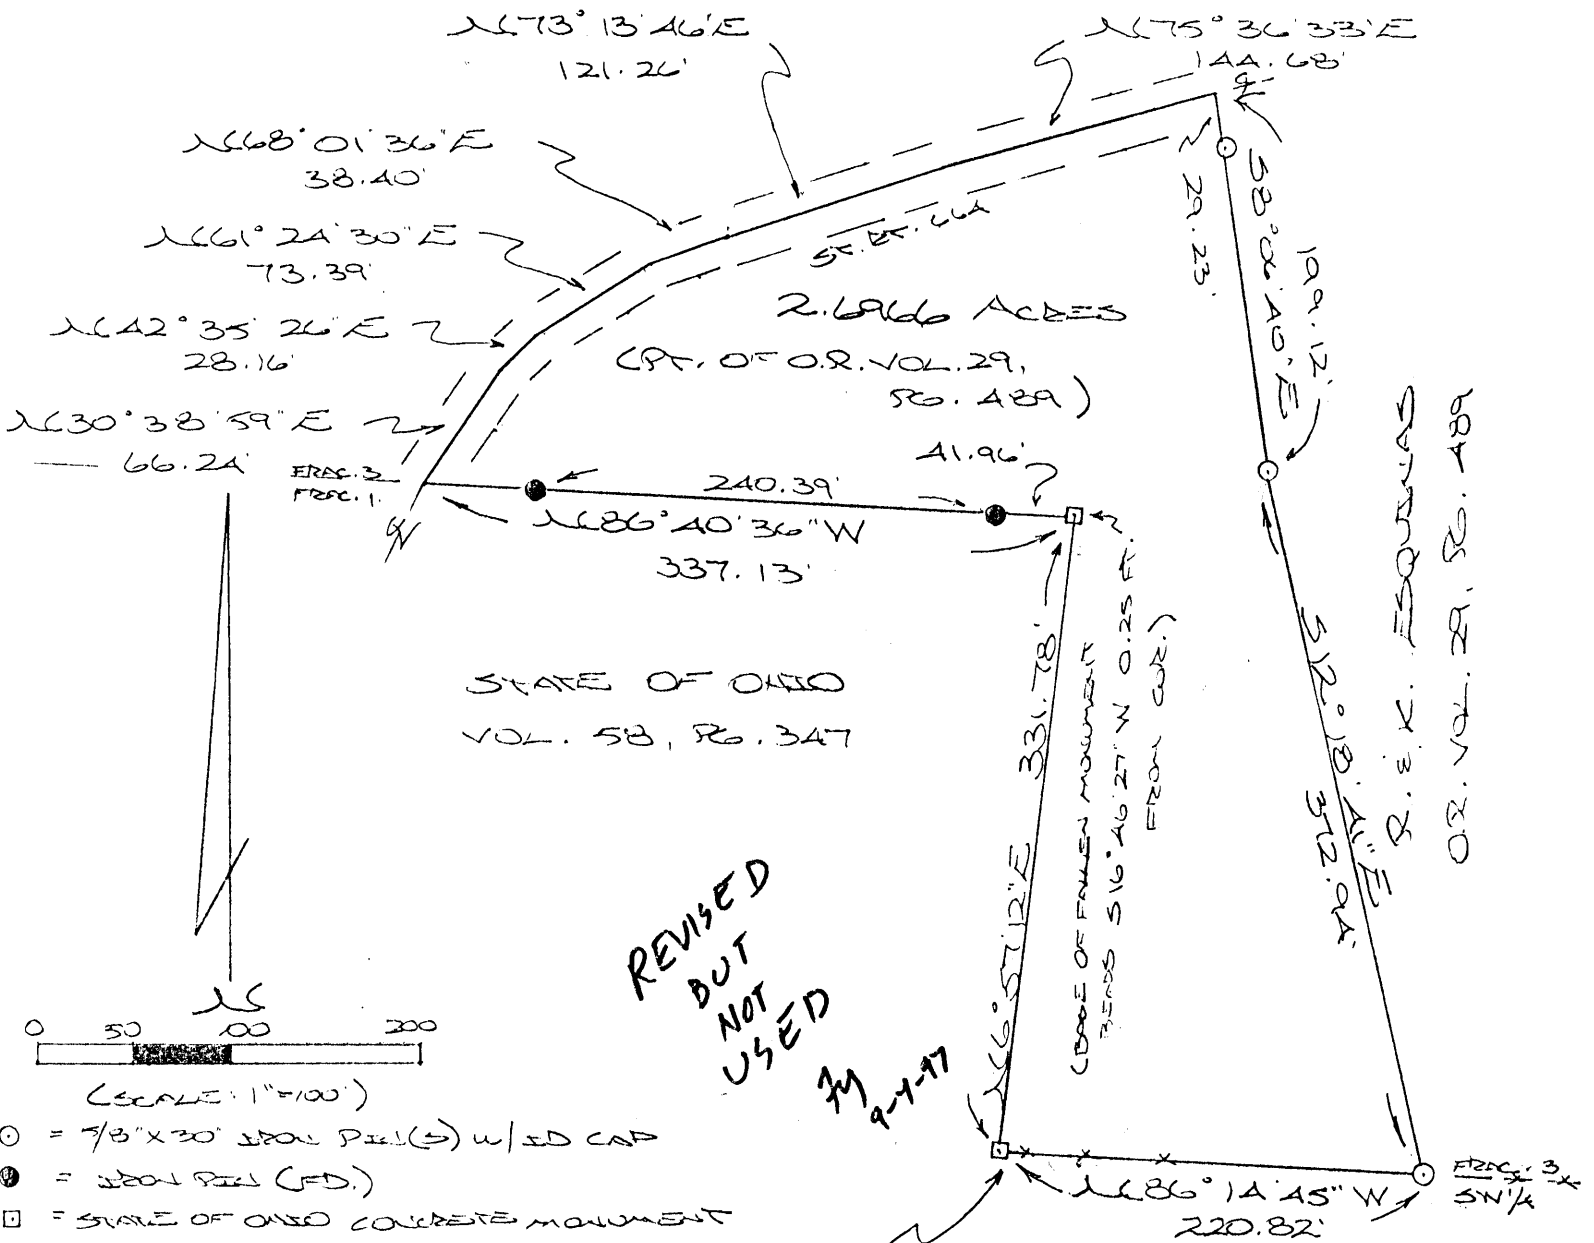 N73°13'46"E
121.26'
N75°36'33"E
144.68'
N68°01'36"E
38.40'
N61°24'30"E
73.39'
N42°35'26"E
28.16'
N30°38'59"E
66.24'
ST. RT. 664
29.23'
S8°06'40"E
199.12'
2.6966 ACRES
(PT. OF O.R. VOL. 29,
PG. 489)
FRAC. 3
FRAC. 1
41.96'
240.39'
N86°40'36"W
337.13'
STATE OF OHIO
VOL. 58, PG. 347
N6°57'12"E 331.78'
(BASE OF FALLEN MONUMENT
BEARS S16°46'27"W 0.25 FT.
FROM COR.)
S12°18'41"E
372.94'
R. & K. ESQUINAS
O.R. VOL. 29, PG. 489
REVISED
BUT
NOT
USED
9-4-97
N
0 50 100 200
(SCALE: 1"=100')
= 5/8"X30" IRON PIN(S) W/ID CAP
= IRON PIN (FD.)
= STATE OF OHIO CONCRETE MONUMENT
N86°14'45"W
220.82'
FRAC. 3
SW 1/4